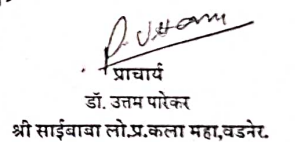 P. Uttam
प्राचार्य
डॉ. उत्तम पारेकर
श्री साईबाबा लो.प्र.कला महा,वडनेर.